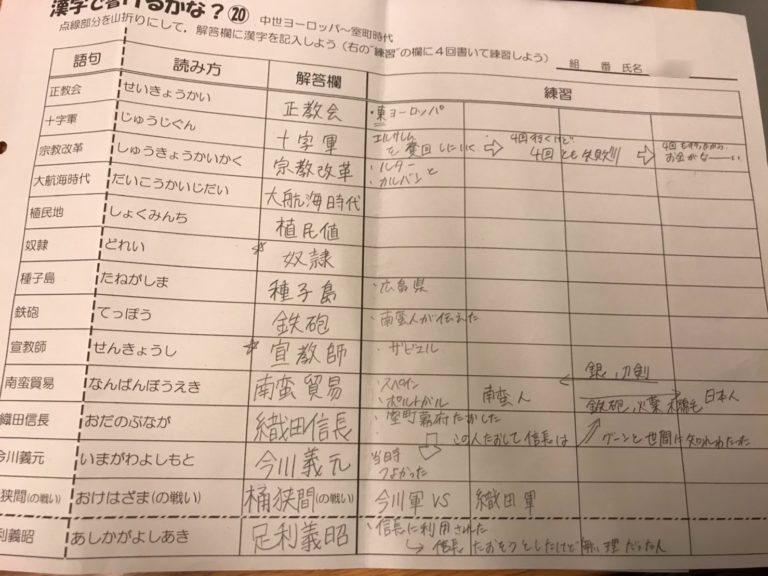 漢字で書けるかな？⑳ 中世ヨーロッパ～室町時代
点線部分を山折りにして，解答欄に漢字を記入しよう（右の“練習”の欄に４回書いて練習しよう） 組 番 氏名
語句 読み方 解答欄 練習
正教会 せいきょうかい 正教会 ・東ヨーロッパ
十字軍 じゅうじぐん 十字軍 エルサレムを奪回しにいく ⇨ 4回行くけど 4回とも失敗!!! ⇨ お金がなーーい
宗教改革 しゅうきょうかいかく 宗教改革 ・ルター ・カルバンと
大航海時代 だいこうかいじだい 大航海時代
植民地 しょくみんち 植民値
奴隷 どれい ☆ 奴隷
種子島 たねがしま 種子島 ・広島県
鉄砲 てっぽう 鉄砲 ・南蛮人が伝えた
宣教師 せんきょうし ☆ 宣教師 ・ザビエル
南蛮貿易 なんばんぼうえき 南蛮貿易 ・スペイン ・ポルトガル 南蛮人 ← 銀，刀剣 鉄砲，火薬 → 日本人
織田信長 おだのぶなが 織田信長 ・室町幕府たおした
⇩ この人たおして信長は ↗ グーンと世間に知られわたった
今川義元 いまがわよしもと 今川義元 当時つよかった
狭間(の戦い) おけはざま(の戦い) 桶狭間(の戦い) 今川軍 VS 織田軍
利義昭 あしかがよしあき 足利義昭 ・信長に利用された
↳ 信長たおそうとしたけど無理だった人